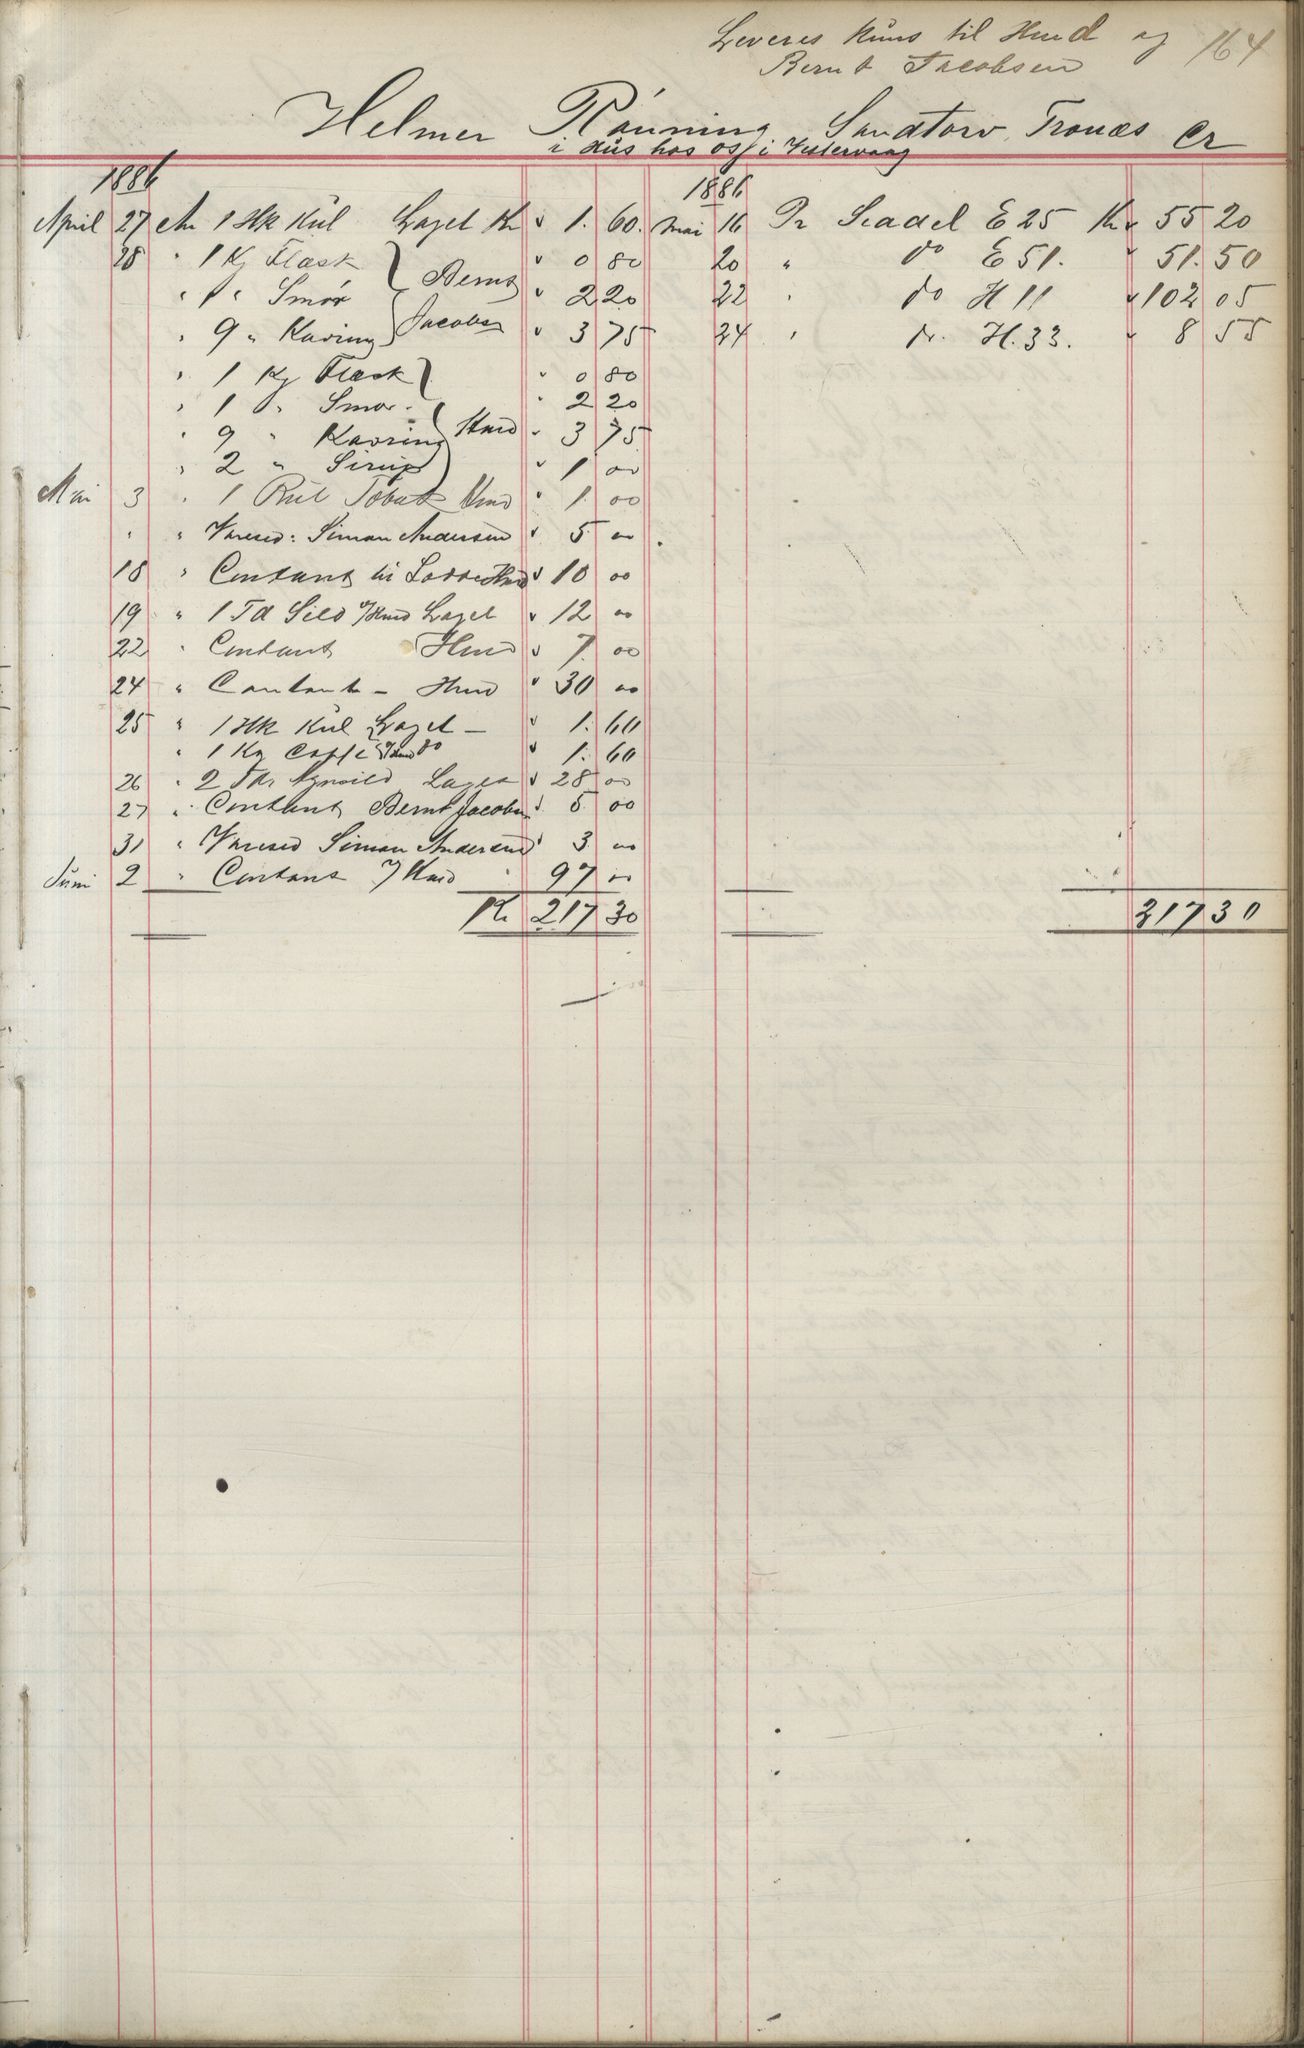 Leveres kuns til Hmd og 164
Bernt Jacobsen
Helmer Rönning Sandtorv Tronæs Cr
i Hüs hos os i Vestervaag
1886
April 27 An 1 Hk Kül Laget Kr 1. 60.
28 " 1 Kg Flæsk } Bernt 0 80
" 1 " Smör Jacobsen 2 20
" 9 " Kavring 3 75
" 1 Kg Flæsk } 0 80
" 1 " Smør 2 20
" 9 " Kavring Hmd 3 75
" 2 " Sirup 1 00
Mai 3 " 1 Rül Tobak Hmd 1 00
" " Varesed: Simon Andersen 5 00
18 " Contant til Hmd 10 00
19 " 1 Td Sild Hmd Laget 12 00
22 " Contant Hmd 7. 00
24 " Contant - Hmd 30 00
25 " 1 Hk Kul Laget - 1. 60
" 1 Kg Caffe Hmd do 1. 60
26 " 2 Laget 28 00
27 " Contant Bernt Jacobsen 5 00
31 " Varesed Simon Andersen 3 00
Juni 2 " Contant Hmd 97 00
Kr 217 30
1886
Mai 16 Pr Seddel E 25 Kr 55 20
20 " do E 51. 51. 50
22 " do H 11 102 05
24 " do. H. 33. 8 55
217 30